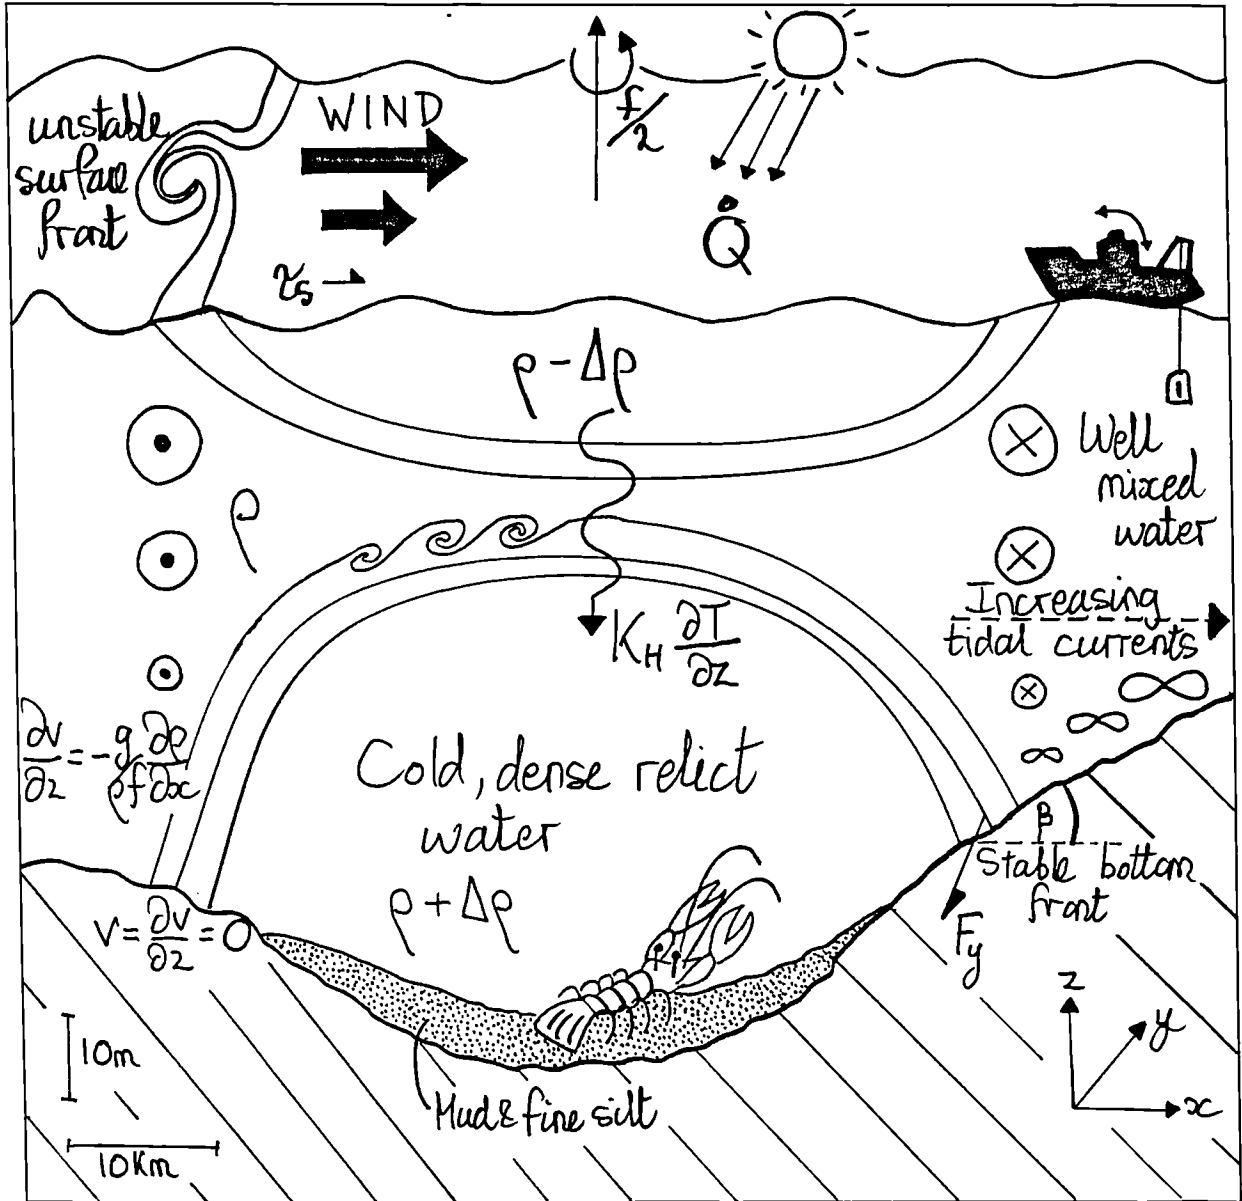 unstable
surface
front
WIND
f/2
τs
Q̇
ρ - Δρ
ρ
Well
mixed
water
Increasing
tidal currents
K_H ∂T/∂z
∂v/∂z = -g/ρf ∂ρ/∂x
Cold, dense relict
water
ρ + Δρ
β
Stable bottom
front
F_y
V = ∂v/∂z = 0
z
y
x
10m
Mud & fine silt
10Km